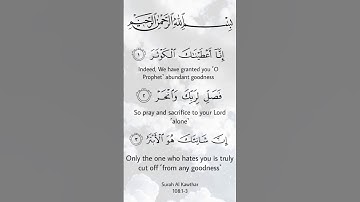 بِسْمِ ٱللَّهِ ٱلرَّحْمَٰنِ ٱلرَّحِيمِ
إِنَّآ أَعْطَيْنَٰكَ ٱلْكَوْثَرَ ١
Indeed, We have granted you ˹O
Prophet˺ abundant goodness
فَصَلِّ لِرَبِّكَ وَٱنْحَرْ ٢
So pray and sacrifice to your Lord
˹alone˺
إِنَّ شَانِئَكَ هُوَ ٱلْأَبْتَرُ ٣
Only the one who hates you is truly
cut off ˹from any goodness˺
Surah Al Kawthar
108:1-3